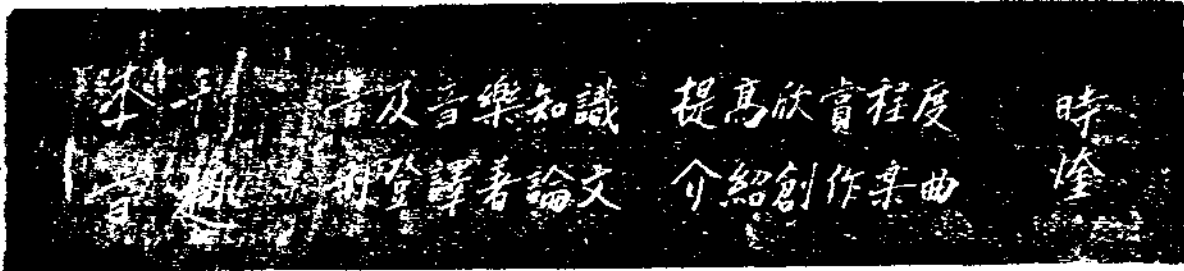 本刊 普及音樂知識 提高欣賞程度 時
旨趣 刊登譯著論文 介紹創作樂曲